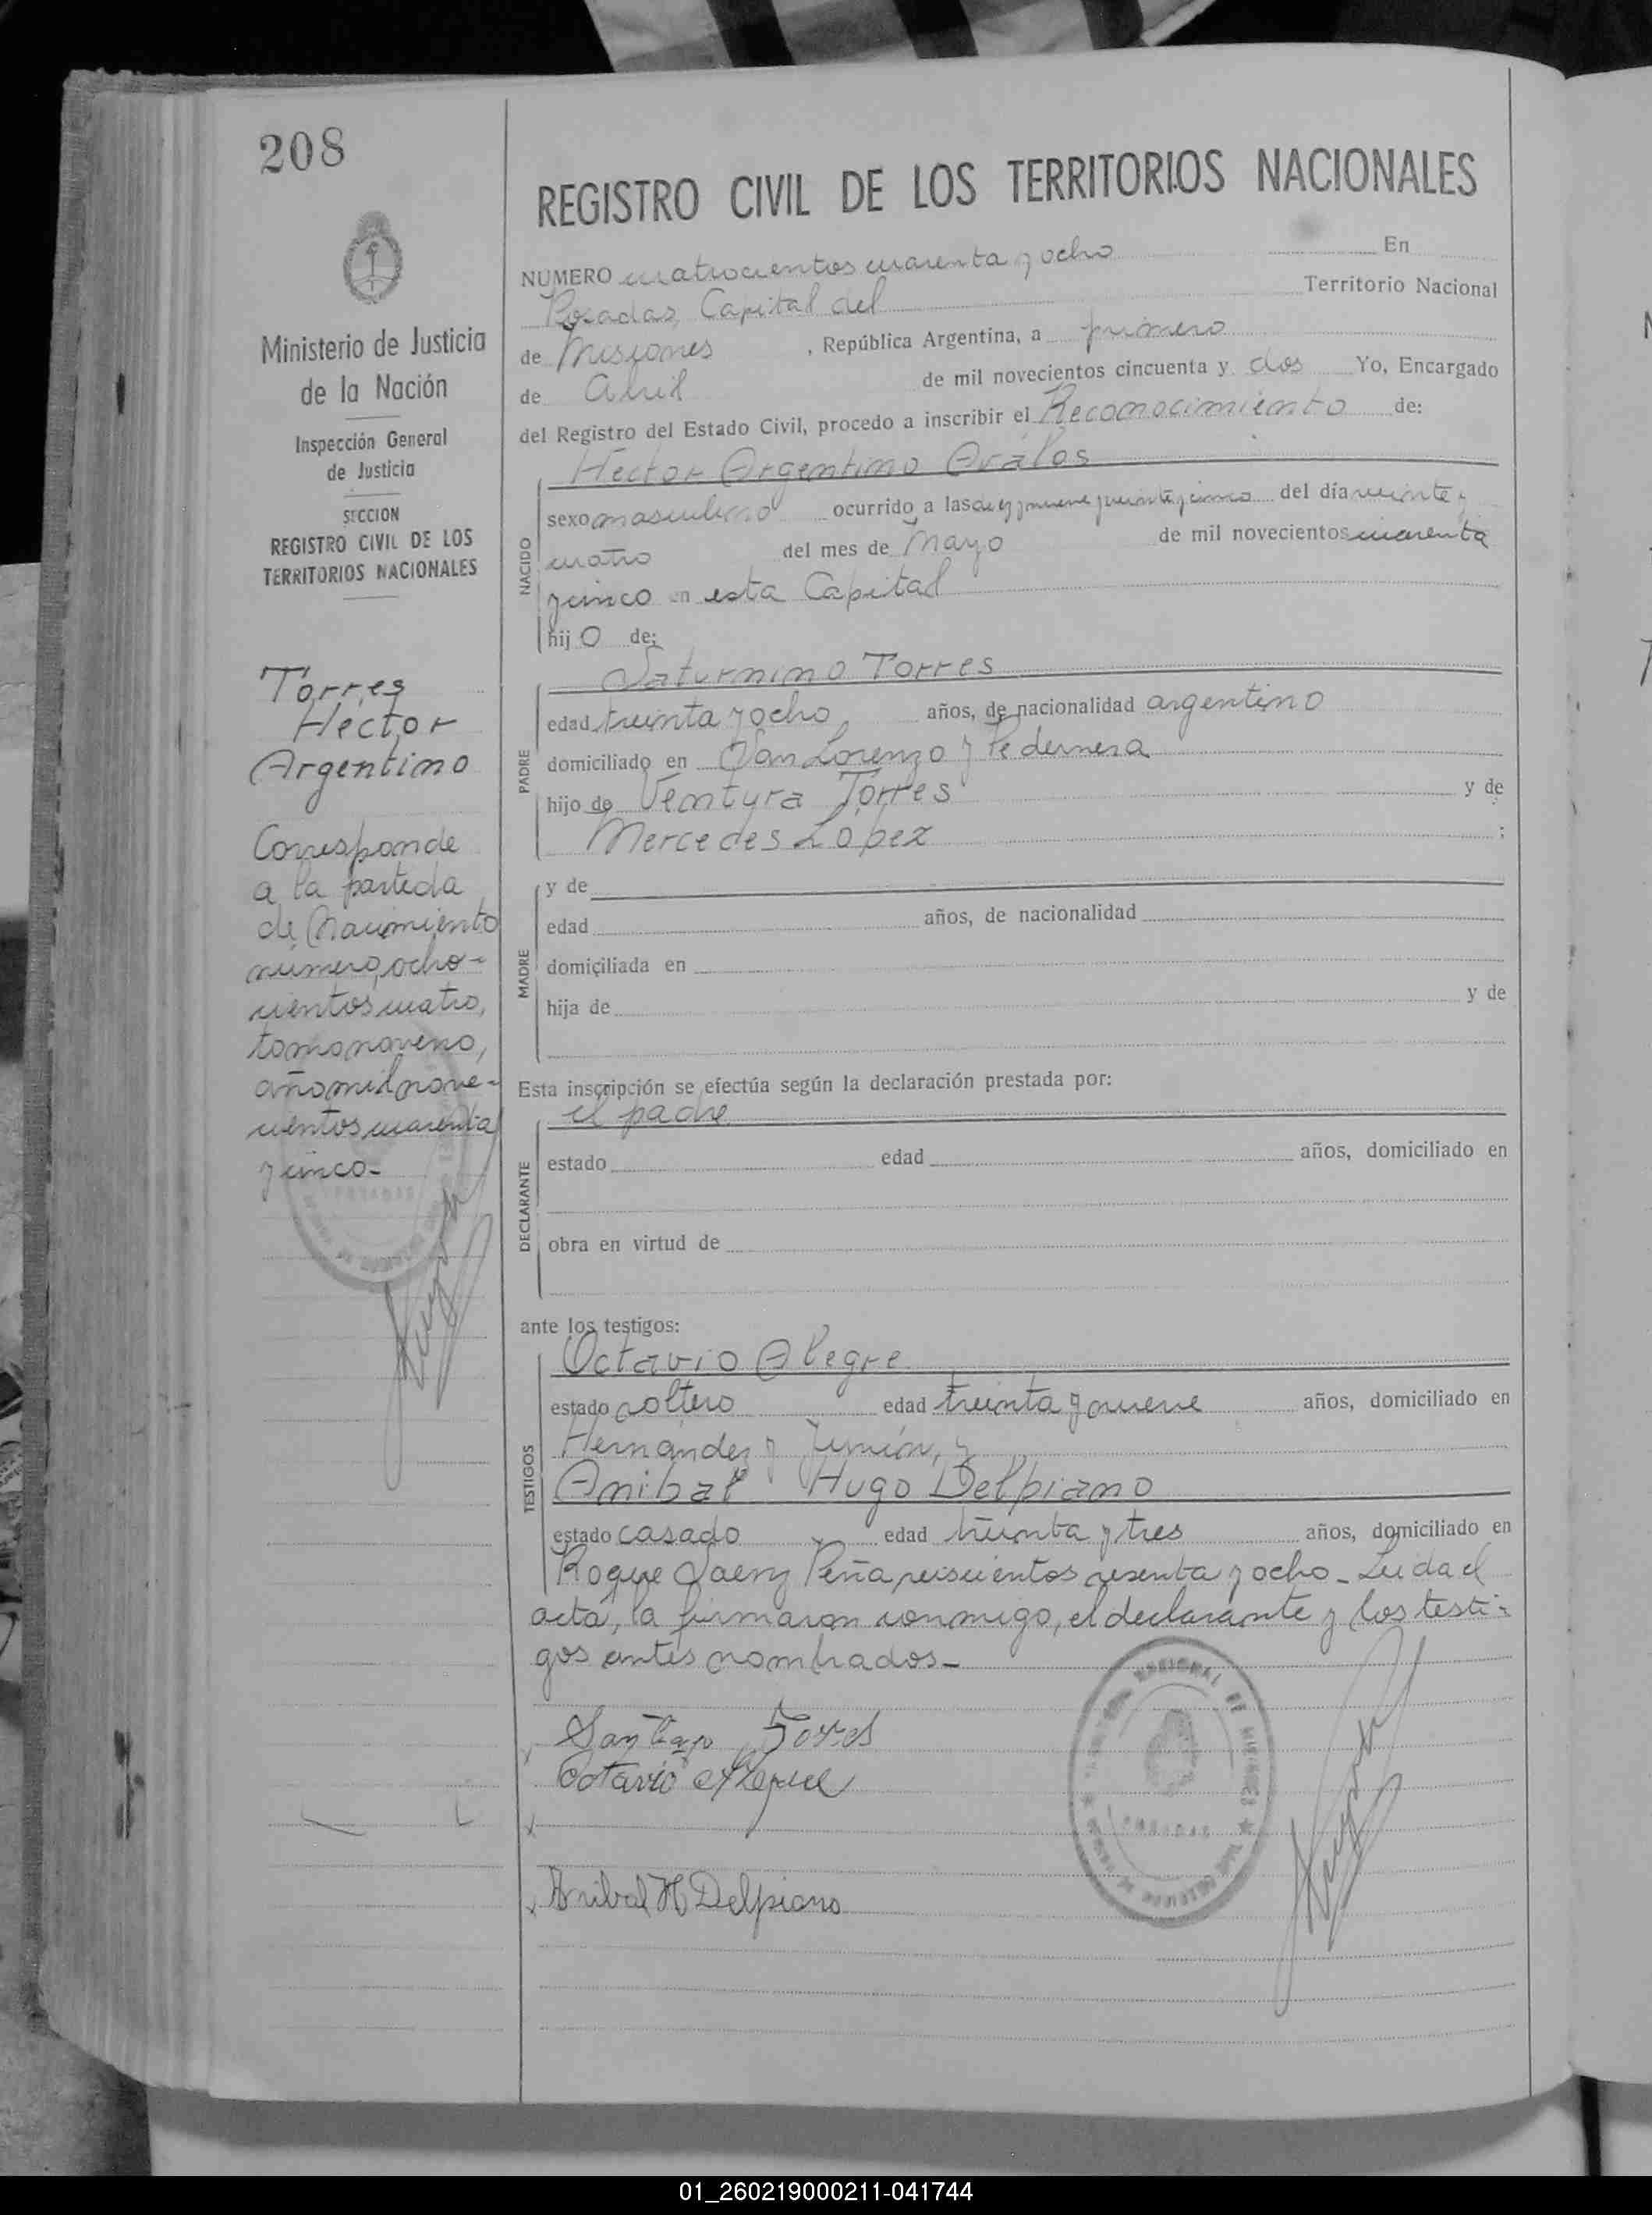 208
REGISTRO CIVIL DE LOS TERRITORIOS NACIONALES
Ministerio de Justicia
de la Nación
Inspección General
de Justicia
SECCION
REGISTRO CIVIL DE LOS
TERRITORIOS NACIONALES
Torres
Hector
Argentino
Corresponde
a la partida
de Nacimiento
número, ocho-
cientos cuatro,
tomo noveno,
año mil nove-
cientos cuarenta
y cinco-
NUMERO cuatrocientos cuarenta y ocho En
Posadas, Capital del Territorio Nacional
de Misiones , República Argentina, a primero
de Abril de mil novecientos cincuenta y dos Yo, Encargado
del Registro del Estado Civil, procedo a inscribir el Reconocimiento de:
Hector Argentino Aválos
NACIDO
sexo masculino ocurrido a las diez y nueve y veinte y cinco del día veinte y
cuatro del mes de Mayo de mil novecientos cuarenta
y cinco en esta Capital
hijo de:
Saturnino Torres
PADRE
edad treinta y ocho años, de nacionalidad argentino
domiciliado en San Lorenzo y Pedernera
hijo de Ventura Torres y de
Mercedes López ;
MADRE
y de
edad años, de nacionalidad
domiciliada en
hija de y de
Esta inscripción se efectúa según la declaración prestada por:
el padre
DECLARANTE
estado edad años, domiciliado en
obra en virtud de
ante los testigos:
Octavio Alegre
TESTIGOS
estado soltero edad treinta y nueve años, domiciliado en
Hernández y Junín, y
Anibal Hugo Delpiano
estado casado edad treinta y tres años, domiciliado en
Roque Saenz Peña seiscientos sesenta y ocho - Leida el
acta, la firmaron conmigo, el declarante y los testi-
gos antes nombrados-
Santiago Torres
Octavio Alegre
Anibal H Delpiano
POSADAS
01_260219000211-041744